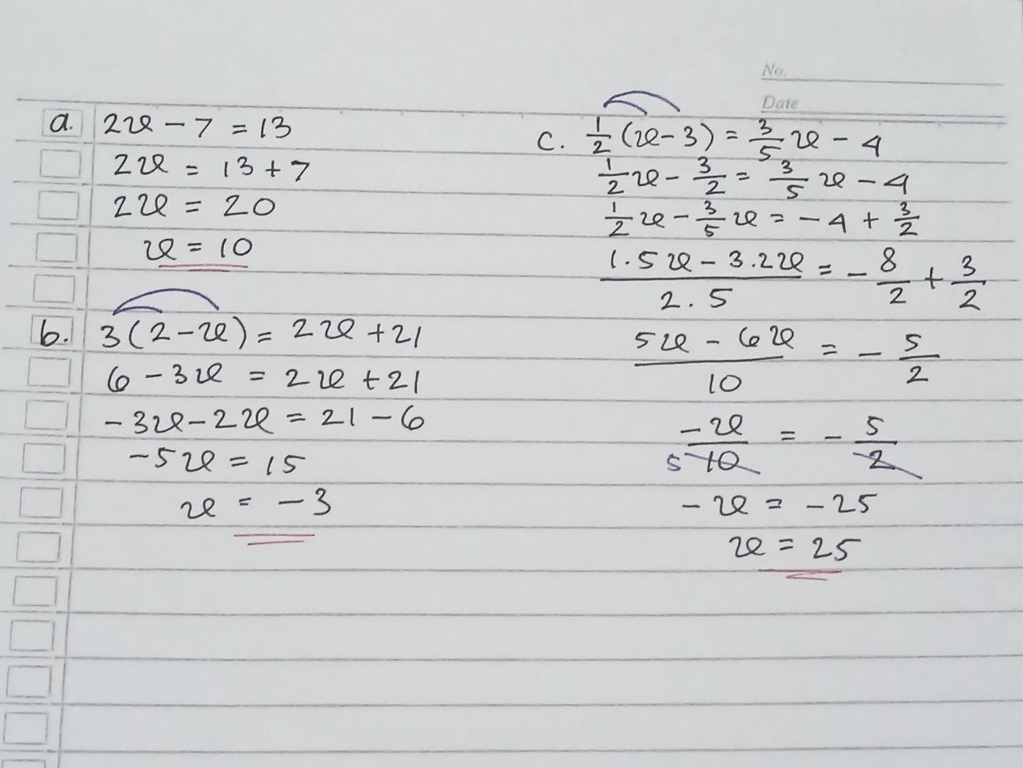 No.
Date
a. 2x - 7 = 13
2x = 13 + 7
2x = 20
x = 10
b. 3(2 - x) = 2x + 21
6 - 3x = 2x + 21
-3x - 2x = 21 - 6
-5x = 15
x = -3
c. 1/2 (x - 3) = 3/5 x - 4
1/2 x - 3/2 = 3/5 x - 4
1/2 x - 3/5 x = -4 + 3/2
(1.5x - 3.2x)/2.5 = -8/2 + 3/2
(5x - 6x)/10 = -5/2
-x/10 = -5/2
5
-x = -25
x = 25